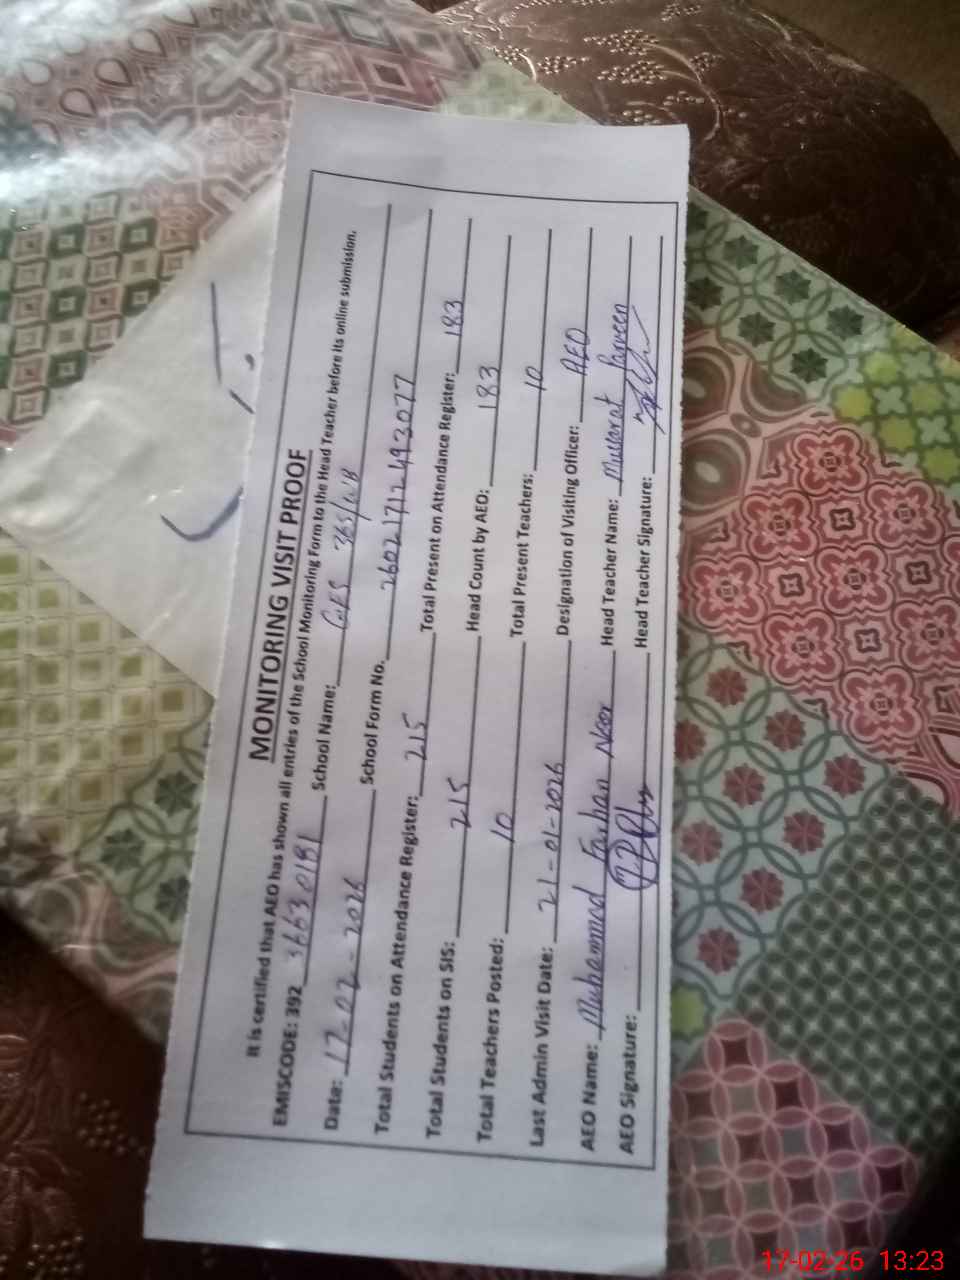 MONITORING VISIT PROOF
It is certified that AEO has shown all entries of the School Monitoring Form to the Head Teacher before its online submission.
EMISCODE: 392 36630181 School Name: GES 365/WB
Date: 17-02-2026 School Form No. 26021712493077
Total Students on Attendance Register: 215 Total Present on Attendance Register: 183
Total Students on SIS: 215 Head Count by AEO: 183
Total Teachers Posted: 10 Total Present Teachers: 10
Last Admin Visit Date: 21-01-2026 Designation of Visiting Officer: AEO
AEO Name: Muhammad Farhan Noor Head Teacher Name: Musarat Parveen
AEO Signature: Head Teacher Signature:
17-02-26 13:23